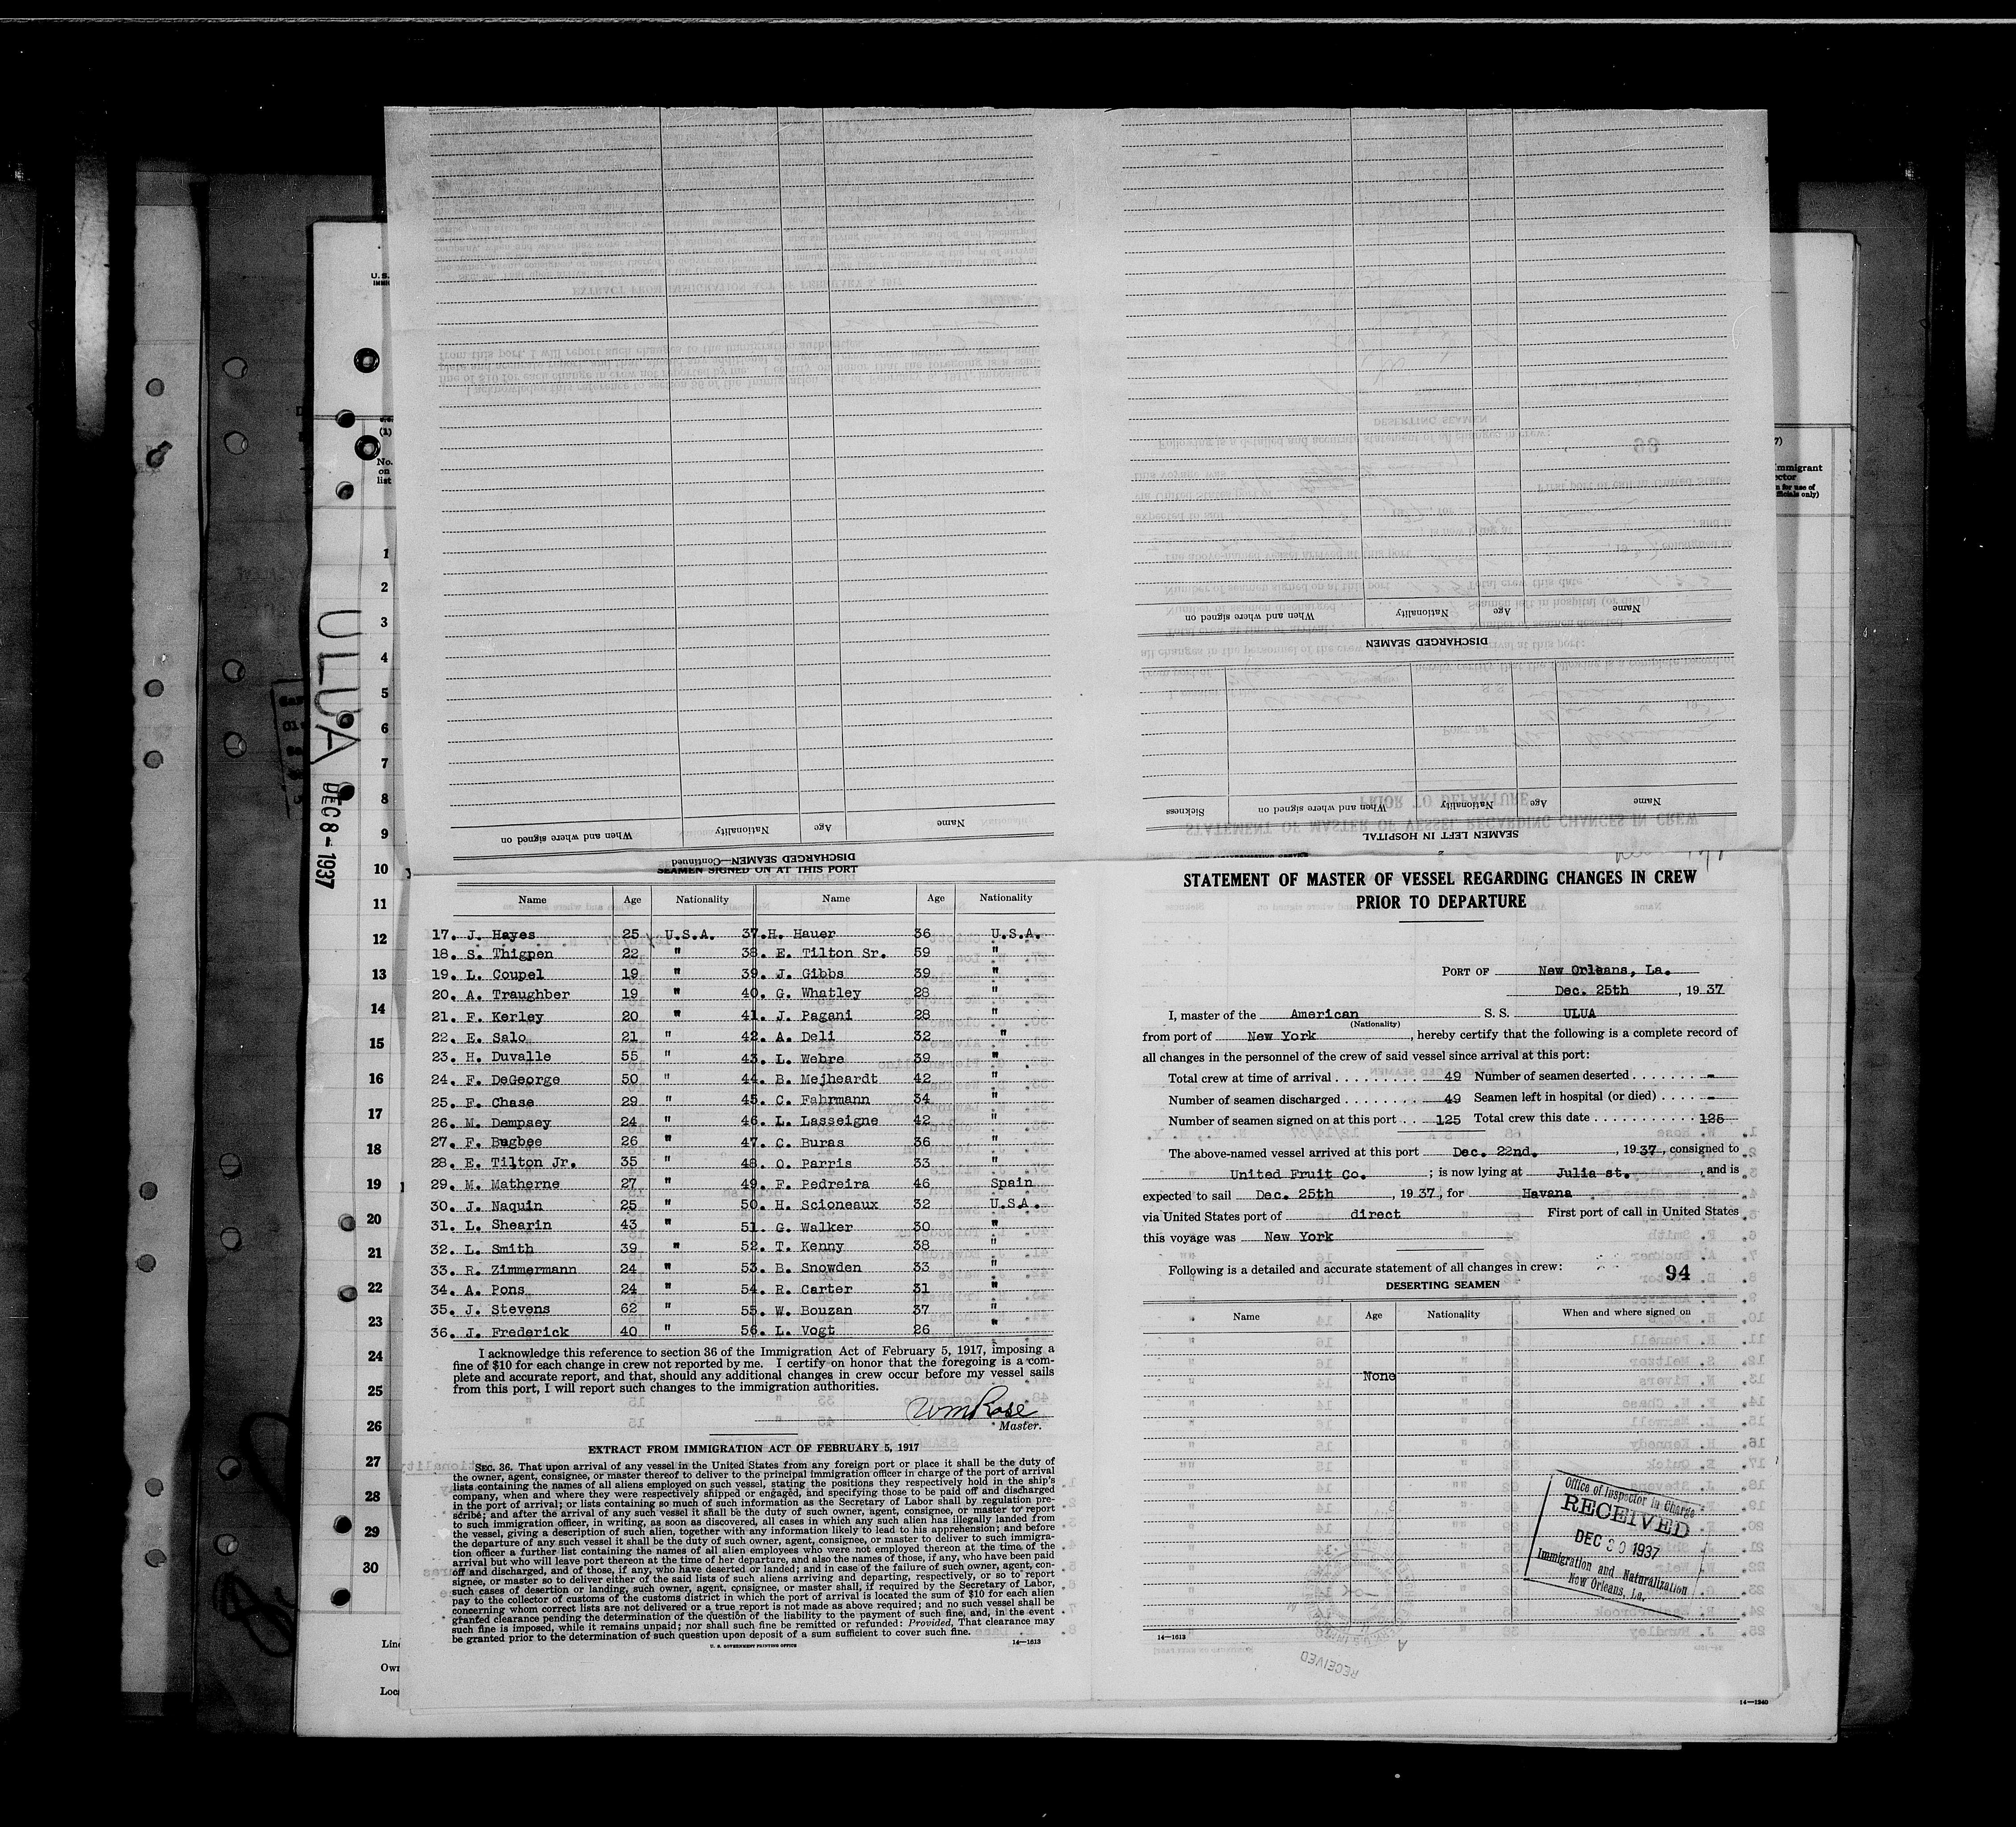 U.S.
IMMI
(1)
No.
on
list
1
2
3
4
5
6
7
8
9
10
11
12
13
14
15
16
17
18
19
20
21
22
23
24
25
26
27
28
29
30
Line
Own
Loca
ULUA
DEC 8-1937
7)
mmigrant
ector
n for use of
fficials only)
DISCHARGED SEAMEN—Continued
Name Age Nationality When and where signed on
DISCHARGED SEAMEN
Name Age Nationality When and where signed on
SEAMEN LEFT IN HOSPITAL
Name Age Nationality When and where signed on Sickness
SEAMEN SIGNED ON AT THIS PORT
Name Age Nationality Name Age Nationality
17. J. Hayes 25 U.S.A. 37. H. Hauer 36 U.S.A.
18. S. Thigpen 22 " 38. E. Tilton Sr. 59 "
19. L. Coupel 19 " 39. J. Gibbs 39 "
20. A. Traughber 19 " 40. G. Whatley 28 "
21. F. Kerley 20 " 41. J. Pagani 28 "
22. E. Salo 21 " 42. A. Deli 32 "
23. H. Duvalle 55 " 43. L. Webre 39 "
24. F. DeGeorge 50 " 44. B. Mejheardt 42 "
25. F. Chase 29 " 45. C. Fahrmann 34 "
26. M. Dempsey 24 " 46. L. Lasseigne 42 "
27. F. Bugbee 26 " 47. C. Buras 36 "
28. E. Tilton Jr. 35 " 48. O. Parris 33 "
29. M. Matherne 27 " 49. F. Pedreira 46 Spain
30. J. Naquin 25 " 50. H. Scioneaux 32 U.S.A.
31. L. Shearin 43 " 51. G. Walker 30 "
32. L. Smith 39 " 52. T. Kenny 38 "
33. R. Zimmermann 24 " 53. B. Snowden 33 "
34. A. Pons 24 " 54. R. Carter 31 "
35. J. Stevens 62 " 55. W. Bouzan 37 "
36. J. Frederick 40 " 56. L. Vogt 26 "
I acknowledge this reference to section 36 of the Immigration Act of February 5, 1917, imposing a
fine of $10 for each change in crew not reported by me. I certify on honor that the foregoing is a com-
plete and accurate report, and that, should any additional changes in crew occur before my vessel sails
from this port, I will report such changes to the immigration authorities.
Wm Rose
Master.
EXTRACT FROM IMMIGRATION ACT OF FEBRUARY 5, 1917
SEC. 36. That upon arrival of any vessel in the United States from any foreign port or place it shall be the duty of
the owner, agent, consignee, or master thereof to deliver to the principal immigration officer in charge of the port of arrival
lists containing the names of all aliens employed on such vessel, stating the positions they respectively hold in the ship's
company, when and where they were respectively shipped or engaged, and specifying those to be paid off and discharged
in the port of arrival; or lists containing so much of such information as the Secretary of Labor shall by regulation pre-
scribe; and after the arrival of any such vessel it shall be the duty of such owner, agent, consignee, or master to report
to such immigration officer, in writing, as soon as discovered, all cases in which any such alien has illegally landed from
the vessel, giving a description of such alien, together with any information likely to lead to his apprehension; and before
the departure of any such vessel it shall be the duty of such owner, agent, consignee, or master to deliver to such immigra-
tion officer a further list containing the names of all alien employees who were not employed thereon at the time of the
arrival but who will leave port thereon at the time of her departure, and also the names of those, if any, who have been paid
off and discharged, and of those, if any, who have deserted or landed; and in case of the failure of such owner, agent, con-
signee, or master so to deliver either of the said lists of such aliens arriving and departing, respectively, or so to report
such cases of desertion or landing, such owner, agent, consignee, or master shall, if required by the Secretary of Labor,
pay to the collector of customs of the customs district in which the port of arrival is located the sum of $10 for each alien
concerning whom correct lists are not delivered or a true report is not made as above required; and no such vessel shall be
granted clearance pending the determination of the question of the liability to the payment of such fine, and, in the event
such fine is imposed, while it remains unpaid; nor shall such fine be remitted or refunded: Provided, That clearance may
be granted prior to the determination of such question upon deposit of a sum sufficient to cover such fine.
U. S. GOVERNMENT PRINTING OFFICE 14—1613
STATEMENT OF MASTER OF VESSEL REGARDING CHANGES IN CREW
PRIOR TO DEPARTURE
PORT OF New Orleans, La.
Dec. 25th, 1937
I, master of the American S. S. ULUA
(Nationality)
from port of New York, hereby certify that the following is a complete record of
all changes in the personnel of the crew of said vessel since arrival at this port:
Total crew at time of arrival 49 Number of seamen deserted -
Number of seamen discharged 49 Seamen left in hospital (or died) -
Number of seamen signed on at this port 125 Total crew this date 125
The above-named vessel arrived at this port Dec. 22nd., 1937, consigned to
United Fruit Co.; is now lying at Julia st., and is
expected to sail Dec. 25th, 1937, for Havana
via United States port of direct First port of call in United States
this voyage was New York
Following is a detailed and accurate statement of all changes in crew: 94
DESERTING SEAMEN
Name Age Nationality When and where signed on
None
Office of Inspector in Charge
RECEIVED
DEC 30 1937
Immigration and Naturalization
New Orleans, La.
14—1613
RECEIVED
14—1240